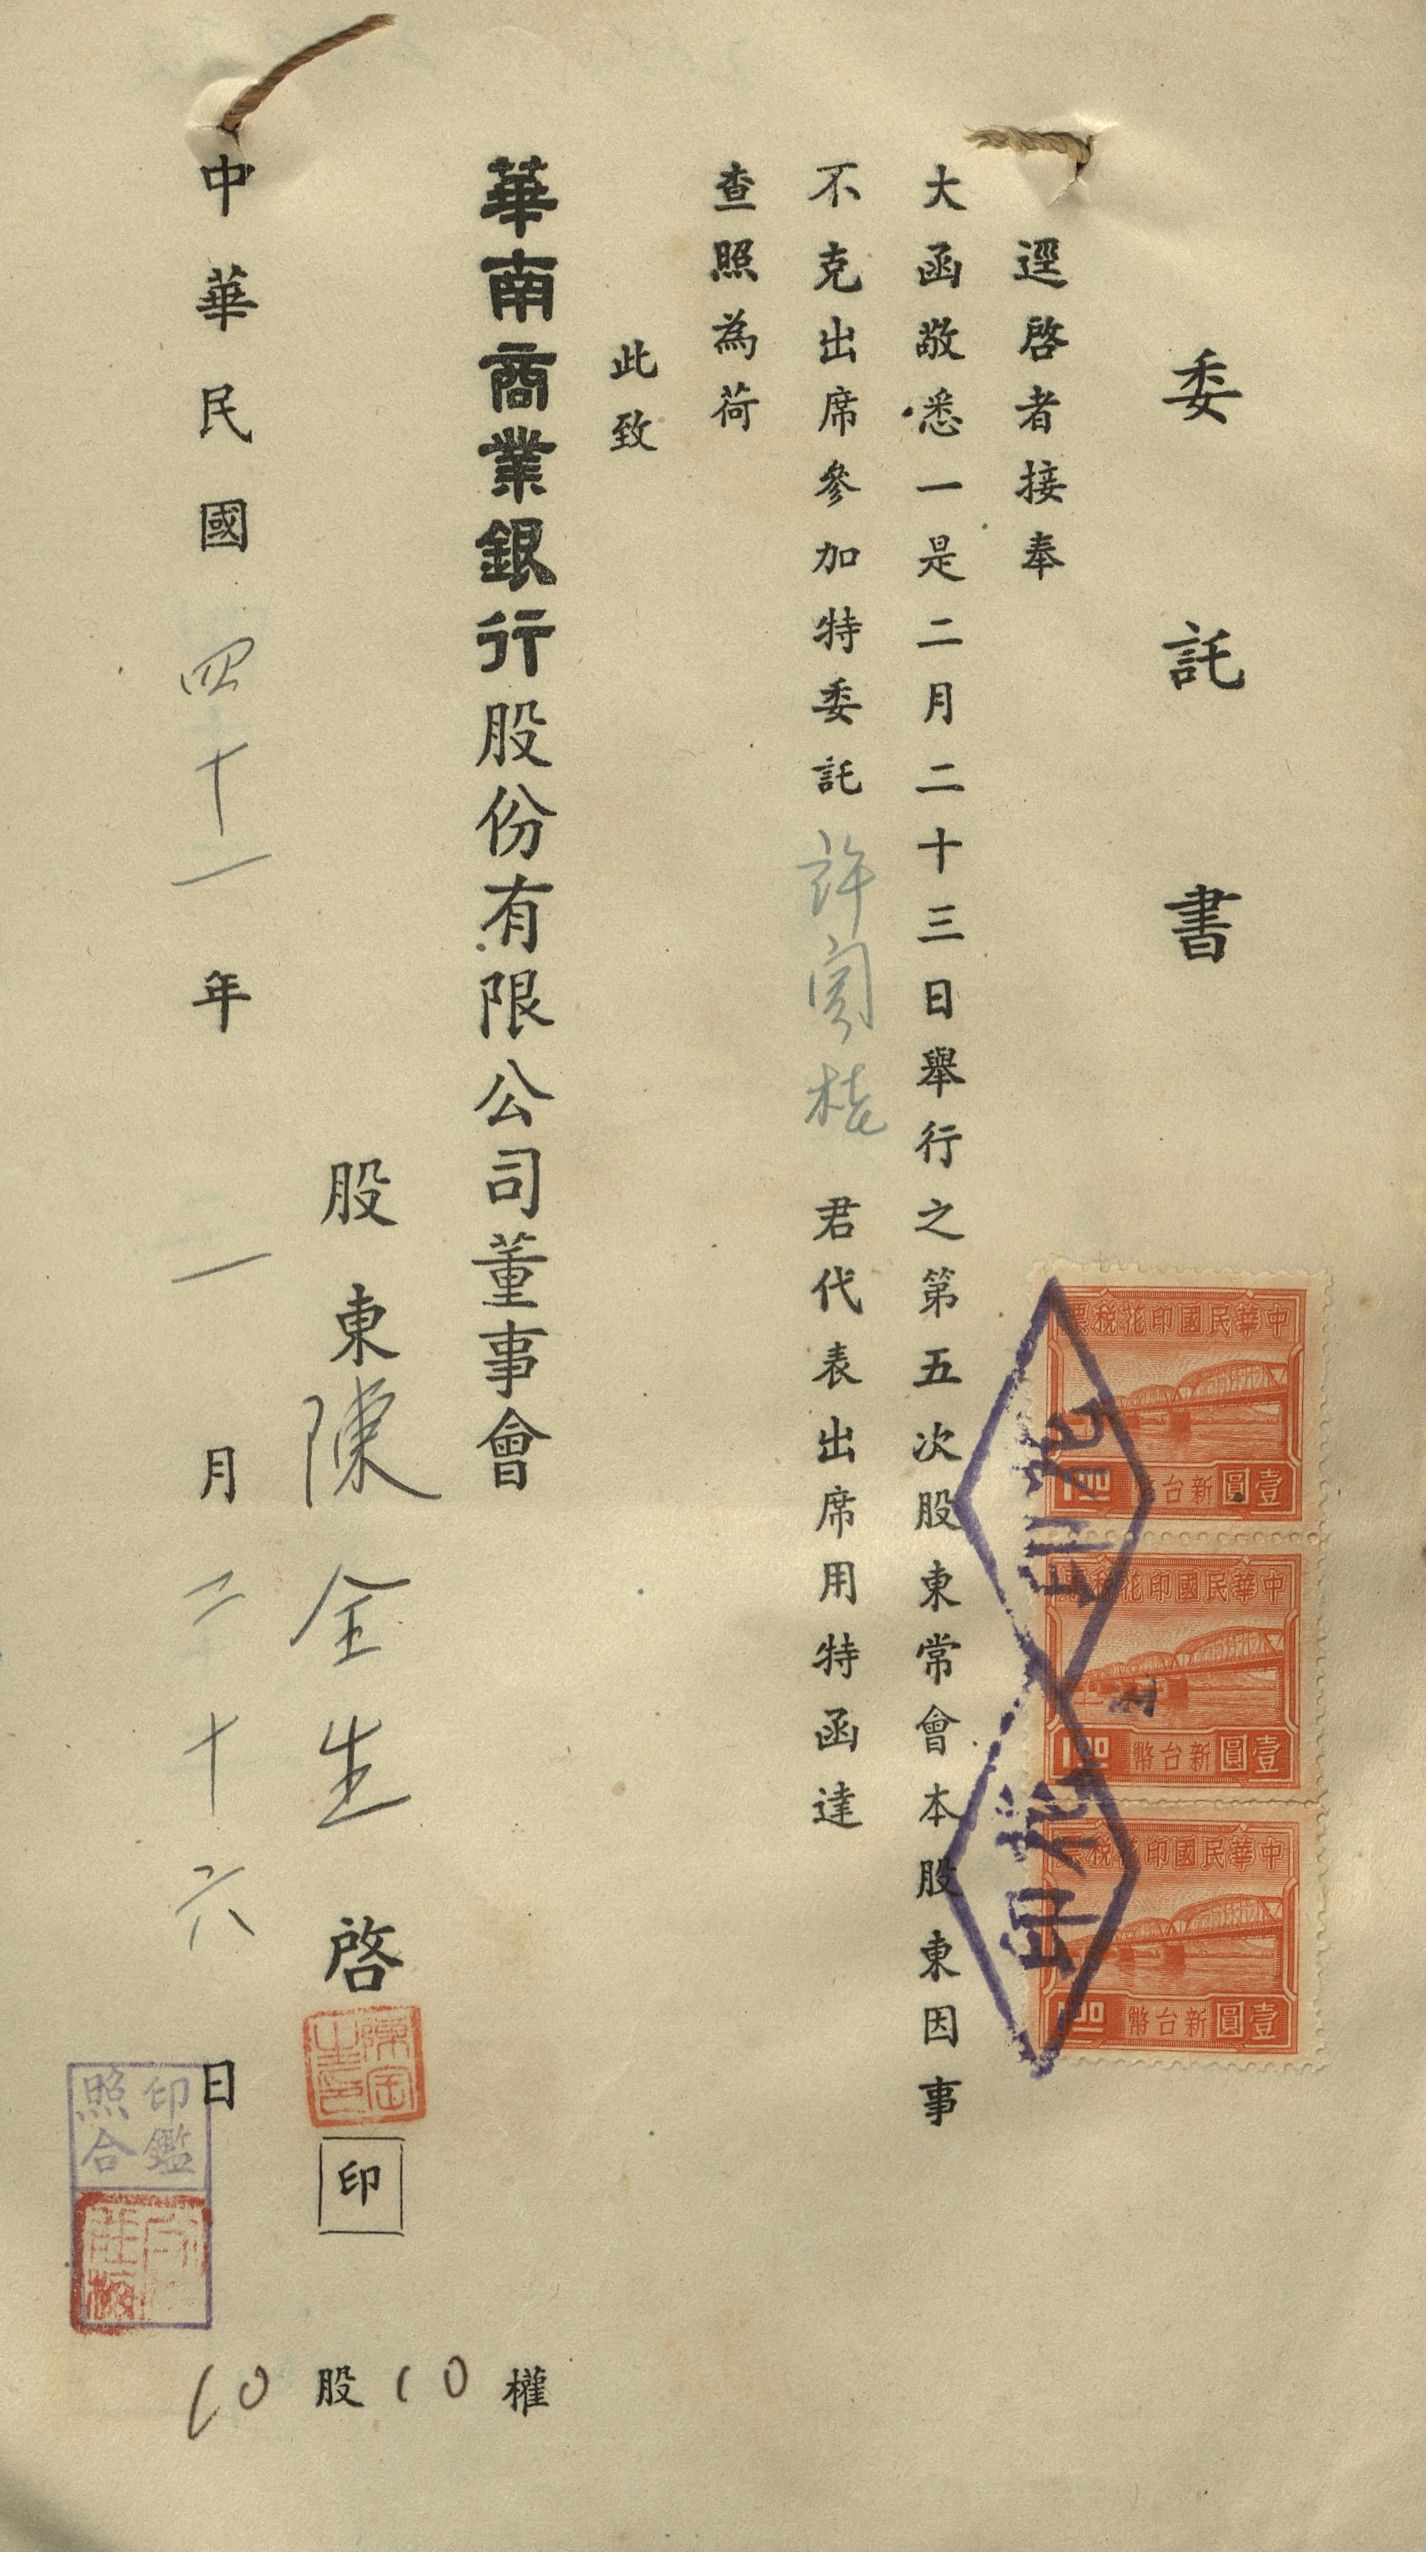 委託書
逕啓者接奉
大函敬悉一是二月二十三日舉行之第五次股東常會本股東因事
不克出席參加特委託許
君代表出席用特函達
查照為荷
此致
華南商業銀行股份有限公司董事會
股東陳全生啓
印
中華民國四十一年一月二十六日
10股10權
中華民國印花稅票
1.00
新台幣
壹圓
中華民國印花稅票
1.00
新台幣
壹圓
中華民國印花稅票
1.00
新台幣
壹圓
印鑑
照合